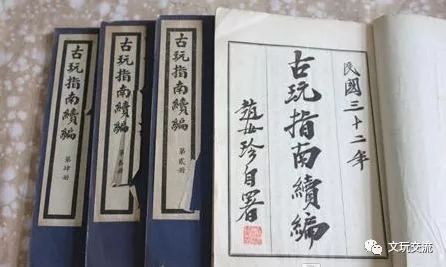 古玩指南續編
第肆冊
古玩指南續編
古玩指南續編
第貳冊
民國三十二年
古玩指南續編
趙汝珍自署
文玩交流